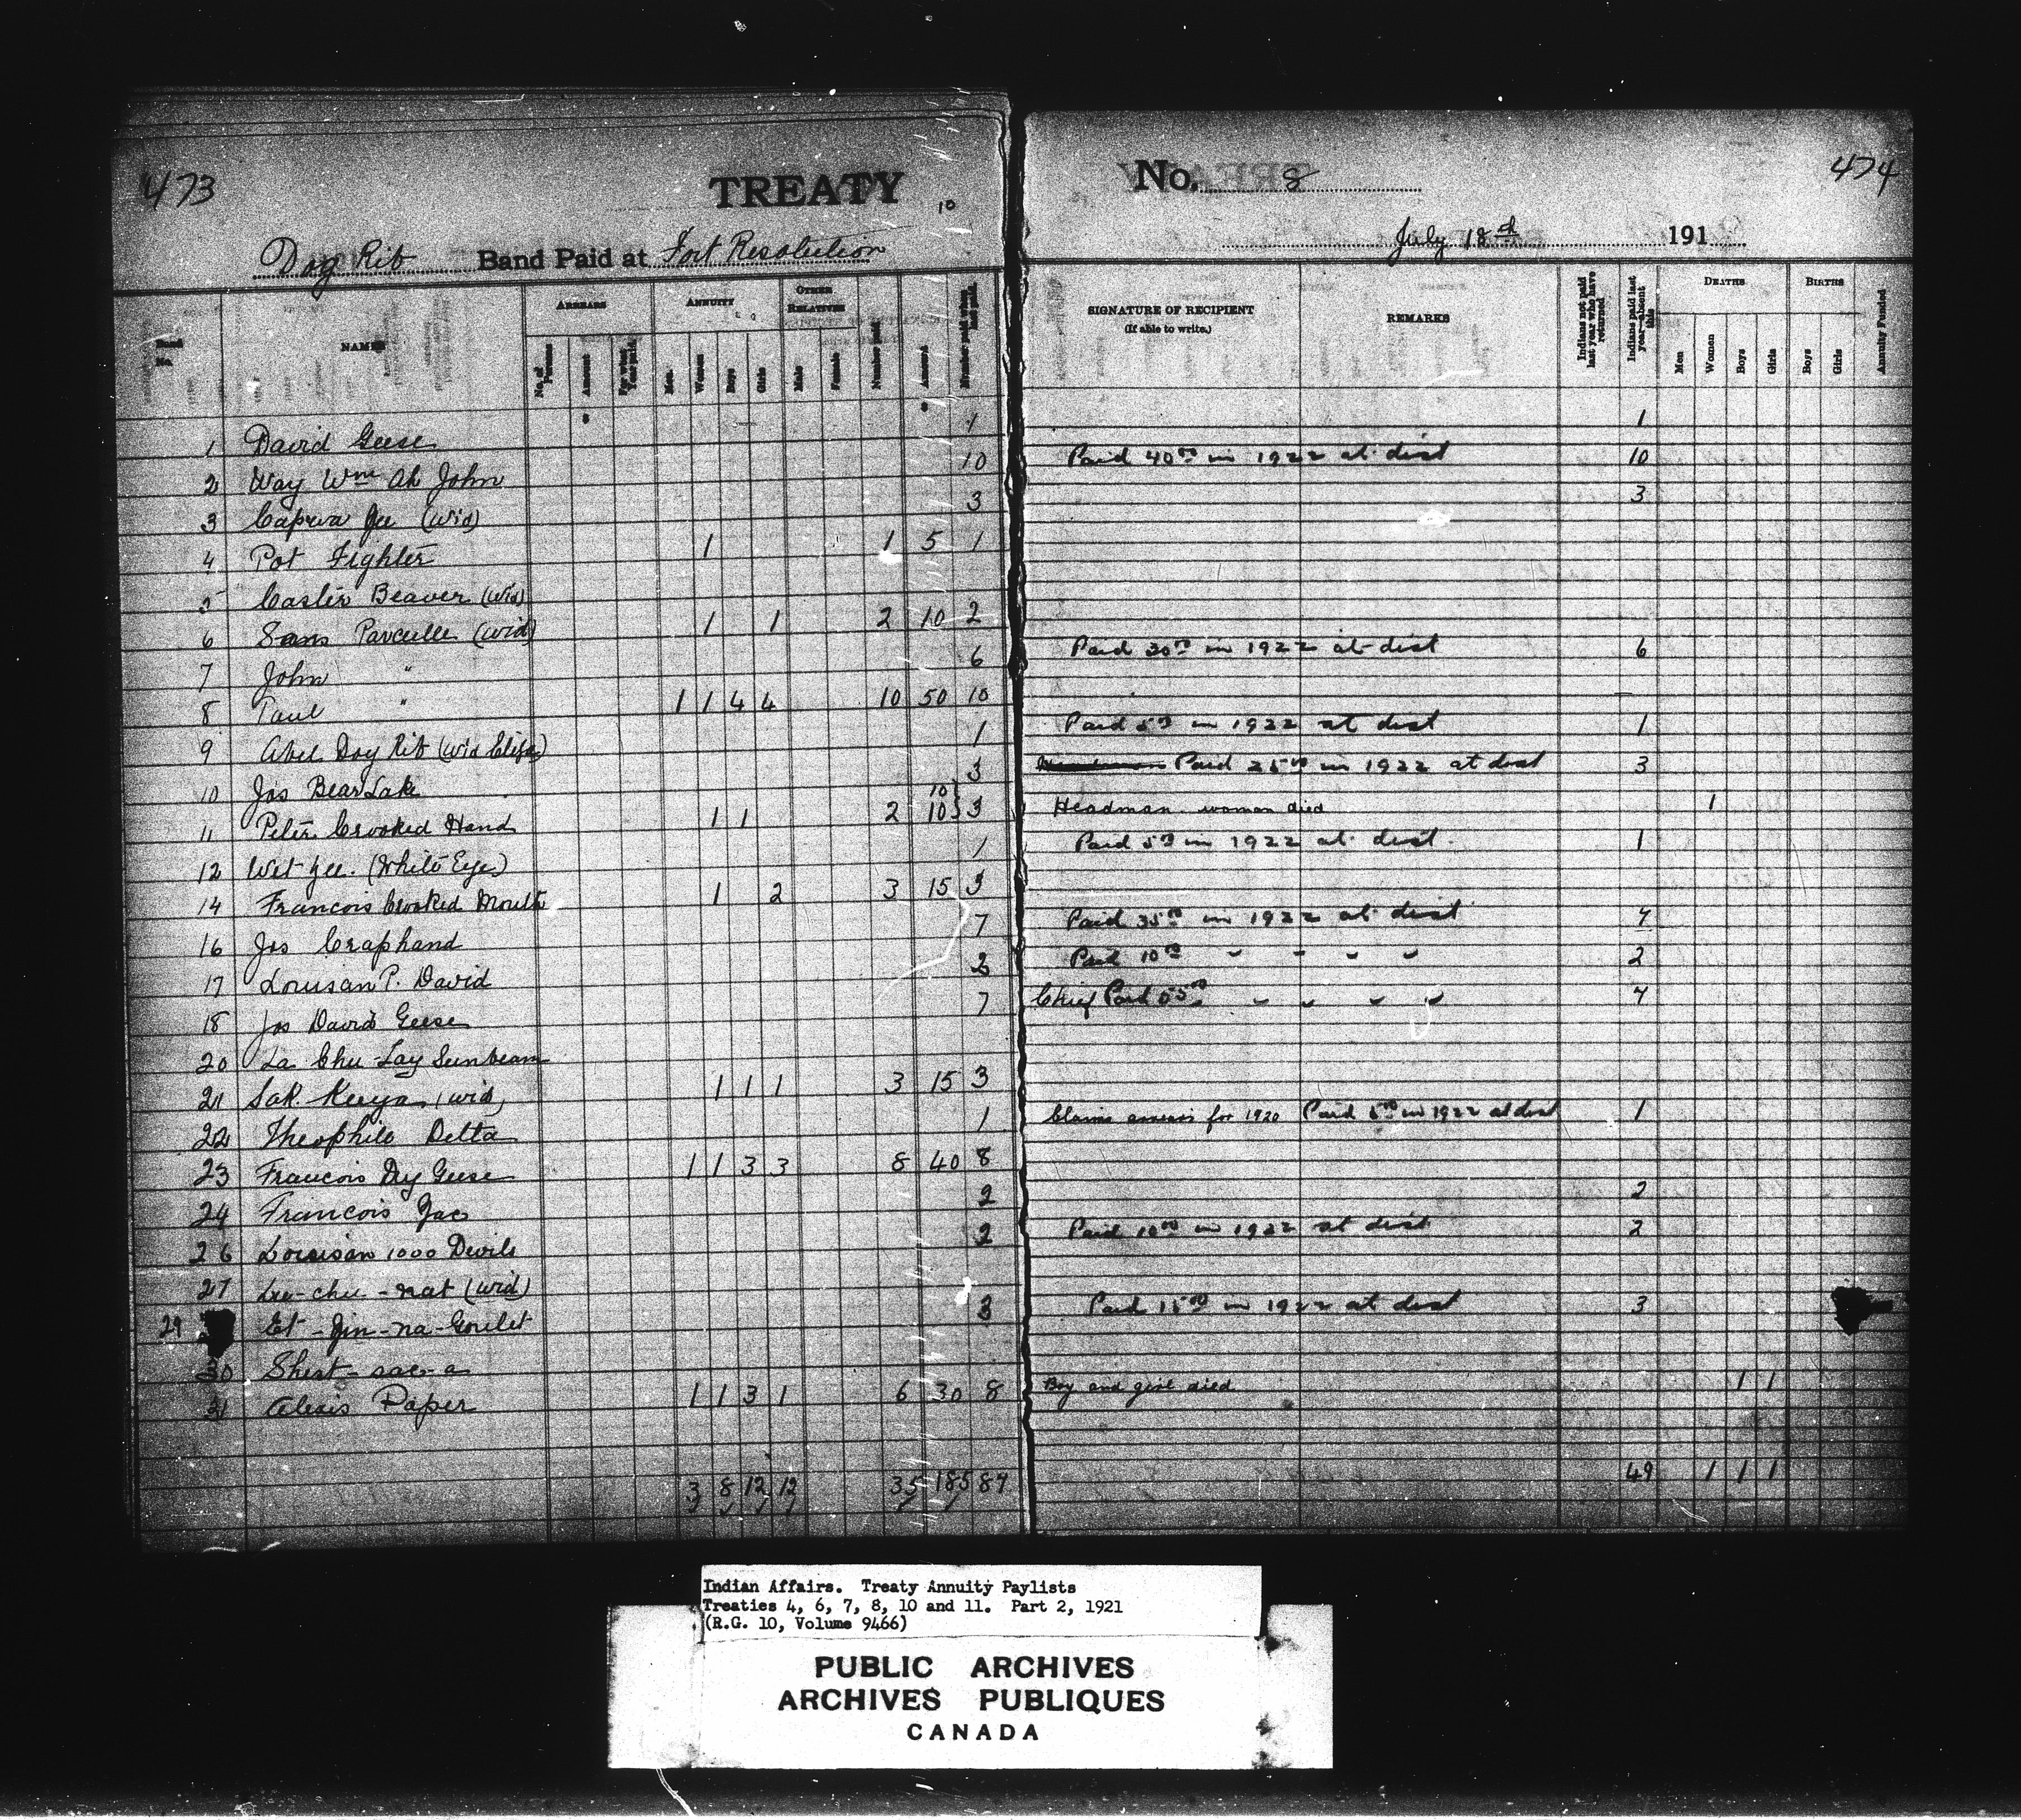 473
TREATY
10
Dog Rib Band Paid at Fort Resolution
No. 8
474
July 18th 191
Band No.
NAME
ARREARS
ANNUITY
OTHER RELATIVES
No. of Persons
Amount
For what Year paid
Men
Women
Boys
Girls
Male
Female
Number paid
Amount
Number paid when last paid
SIGNATURE OF RECIPIENT
(If able to write.)
REMARKS
Indians not paid last year who have returned
Indians paid last year—absent this
DEATHS
BIRTHS
Men
Women
Boys
Girls
Boys
Girls
Annuity Funded
1 David Geese 1 1
2 Way Wm Ah John 10 Paid 40.00 in 1922 at dist 10
3 (wid) 3 3
4 Pot Fighter 1 1 5 1
5 Caster Beaver (wid)
6 Sans Parcelle (wid) 1 1 2 10 2
7 John " 6 Paid 30.00 in 1922 at dist 6
8 Paul " 1 1 4 4 10 50 10
9 Abel Dog Rib (wid Eliza) 1 Paid 5.00 in 1922 at dist 1
10 Jos Bear Lake 3 Paid 25.00 in 1922 at dist 3
11 Peter Crooked Hand 1 1 2 10 10 3 Headman woman died 1
12 Wet-zee. (White Eye) 1 Paid 5.00 in 1922 at dist. 1
14 Francois Crooked Mouth 1 2 3 15 3
16 Jos Craphand 7 Paid 35.00 in 1922 at dist 7
17 Louison P. David 2 Paid 10.00 " " " " 2
18 Jos David Geese 7 Chief Paid 55.00 " " " " 7
20 La Chu-Lay Sunbeam
21 Sak. Keeya (wid) 1 1 1 3 15 3
22 Theophile Delta 1 Claims arrears for 1920 Paid 5.00 in 1922 at dist 1
23 Francois Dry Geese 1 1 3 3 8 40 8
24 Francois Jac 2 2
26 Louison 1000 Devils 2 Paid 10.00 in 1922 at dist 2
27 Lee-chu-nat (wid)
29 Et-Jin-na-Goulet 3 Paid 15.00 in 1922 at dist 3
30 Shest-sae-a
31 Alexis Paper 1 1 3 1 6 30 8 Boy and girl died 1 1
3 8 12 12 35 185 87 49 1 1 1
Indian Affairs. Treaty Annuity Paylists
Treaties 4, 6, 7, 8, 10 and 11. Part 2, 1921
(R.G. 10, Volume 9466)
PUBLIC ARCHIVES
ARCHIVES PUBLIQUES
CANADA